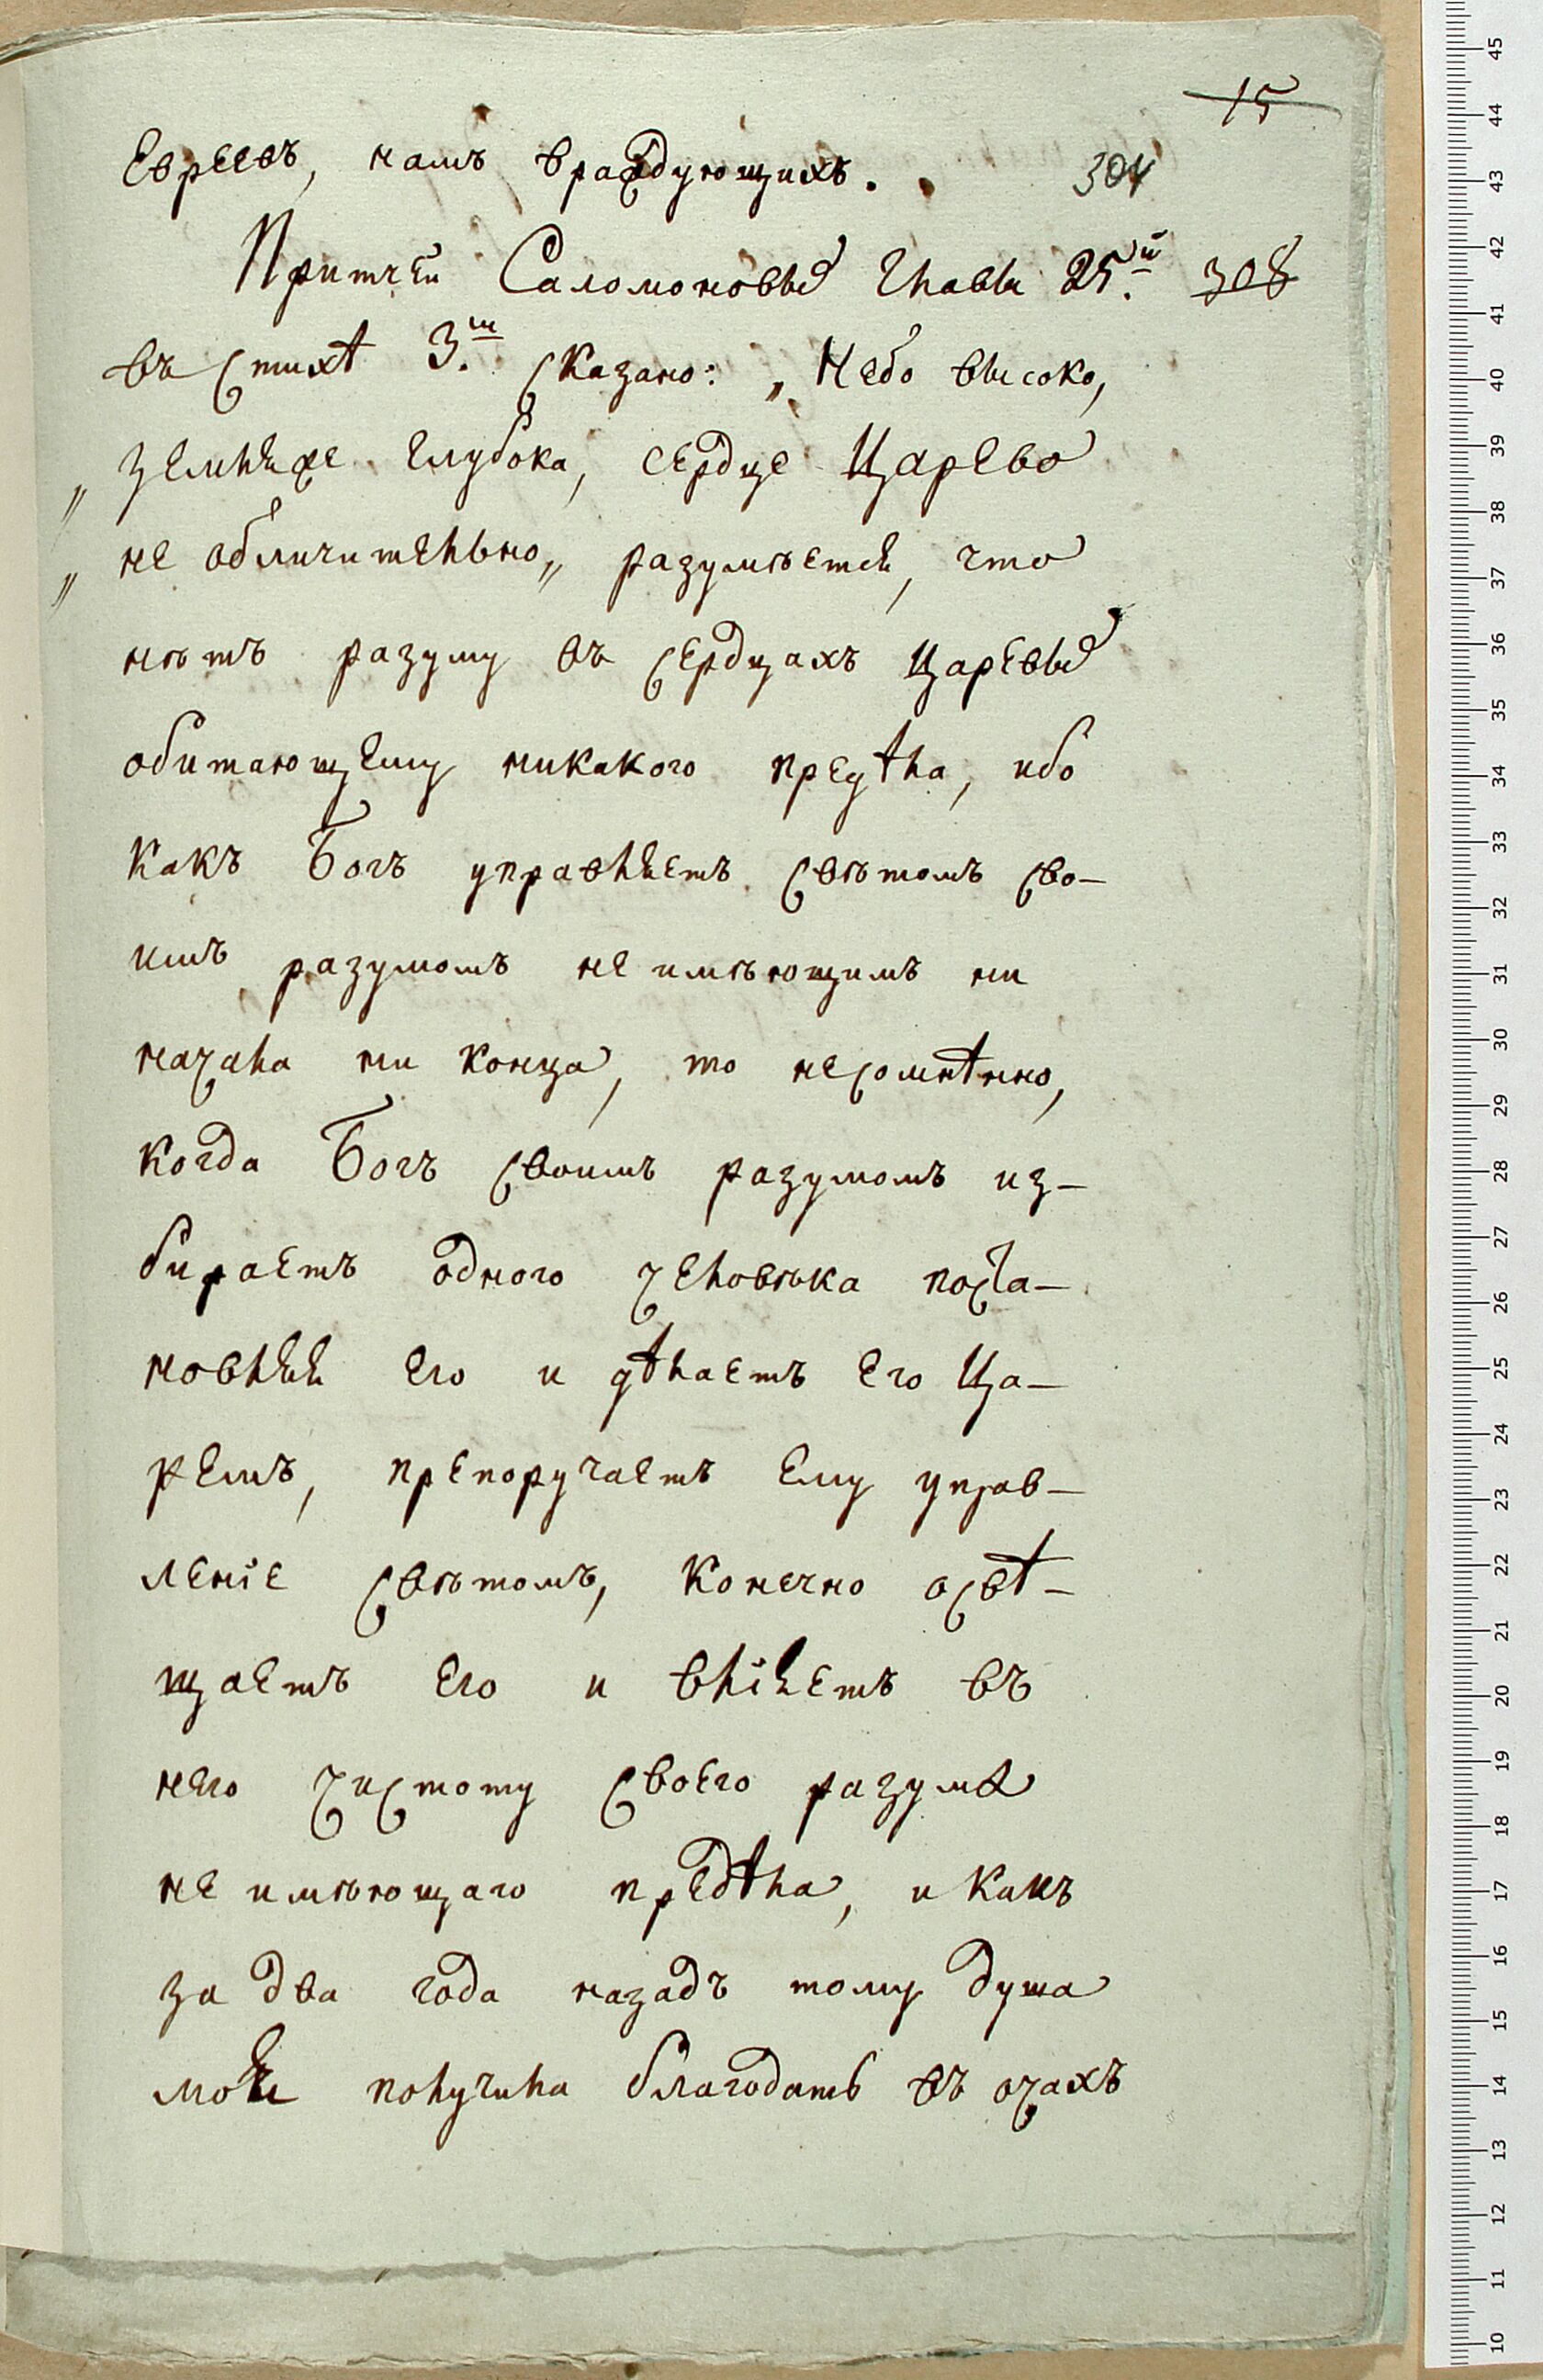 15
Евреевъ, намъ враждующихъ.
304
Притчей Саломоновыхъ главы 25.й
308
въ стихѣ 3.м сказано: „Небо высоко,
„ земля же глубока, сердце Царево
„ не обличительно„ разумѣется, что
нѣтъ разуму въ сердцахъ Царевыхъ
обитающему никакого предѣла, ибо
какъ Богъ управляетъ свѣтомъ сво-
имъ разумомъ не имѣющимъ ни
начала ни конца, то несомнѣнно,
когда Богъ своимъ разумомъ из-
бираетъ одного человѣка поста-
новляя его и дѣлаетъ его Ца-
ремъ, препоручаетъ ему управ-
леніе свѣтомъ, конечно освѣ-
щаетъ его и вліяетъ въ
него чистоту своего разума
не имѣющаго предѣла, и какъ
за два года назадъ тому душа
моя получила благодать въ очахъ